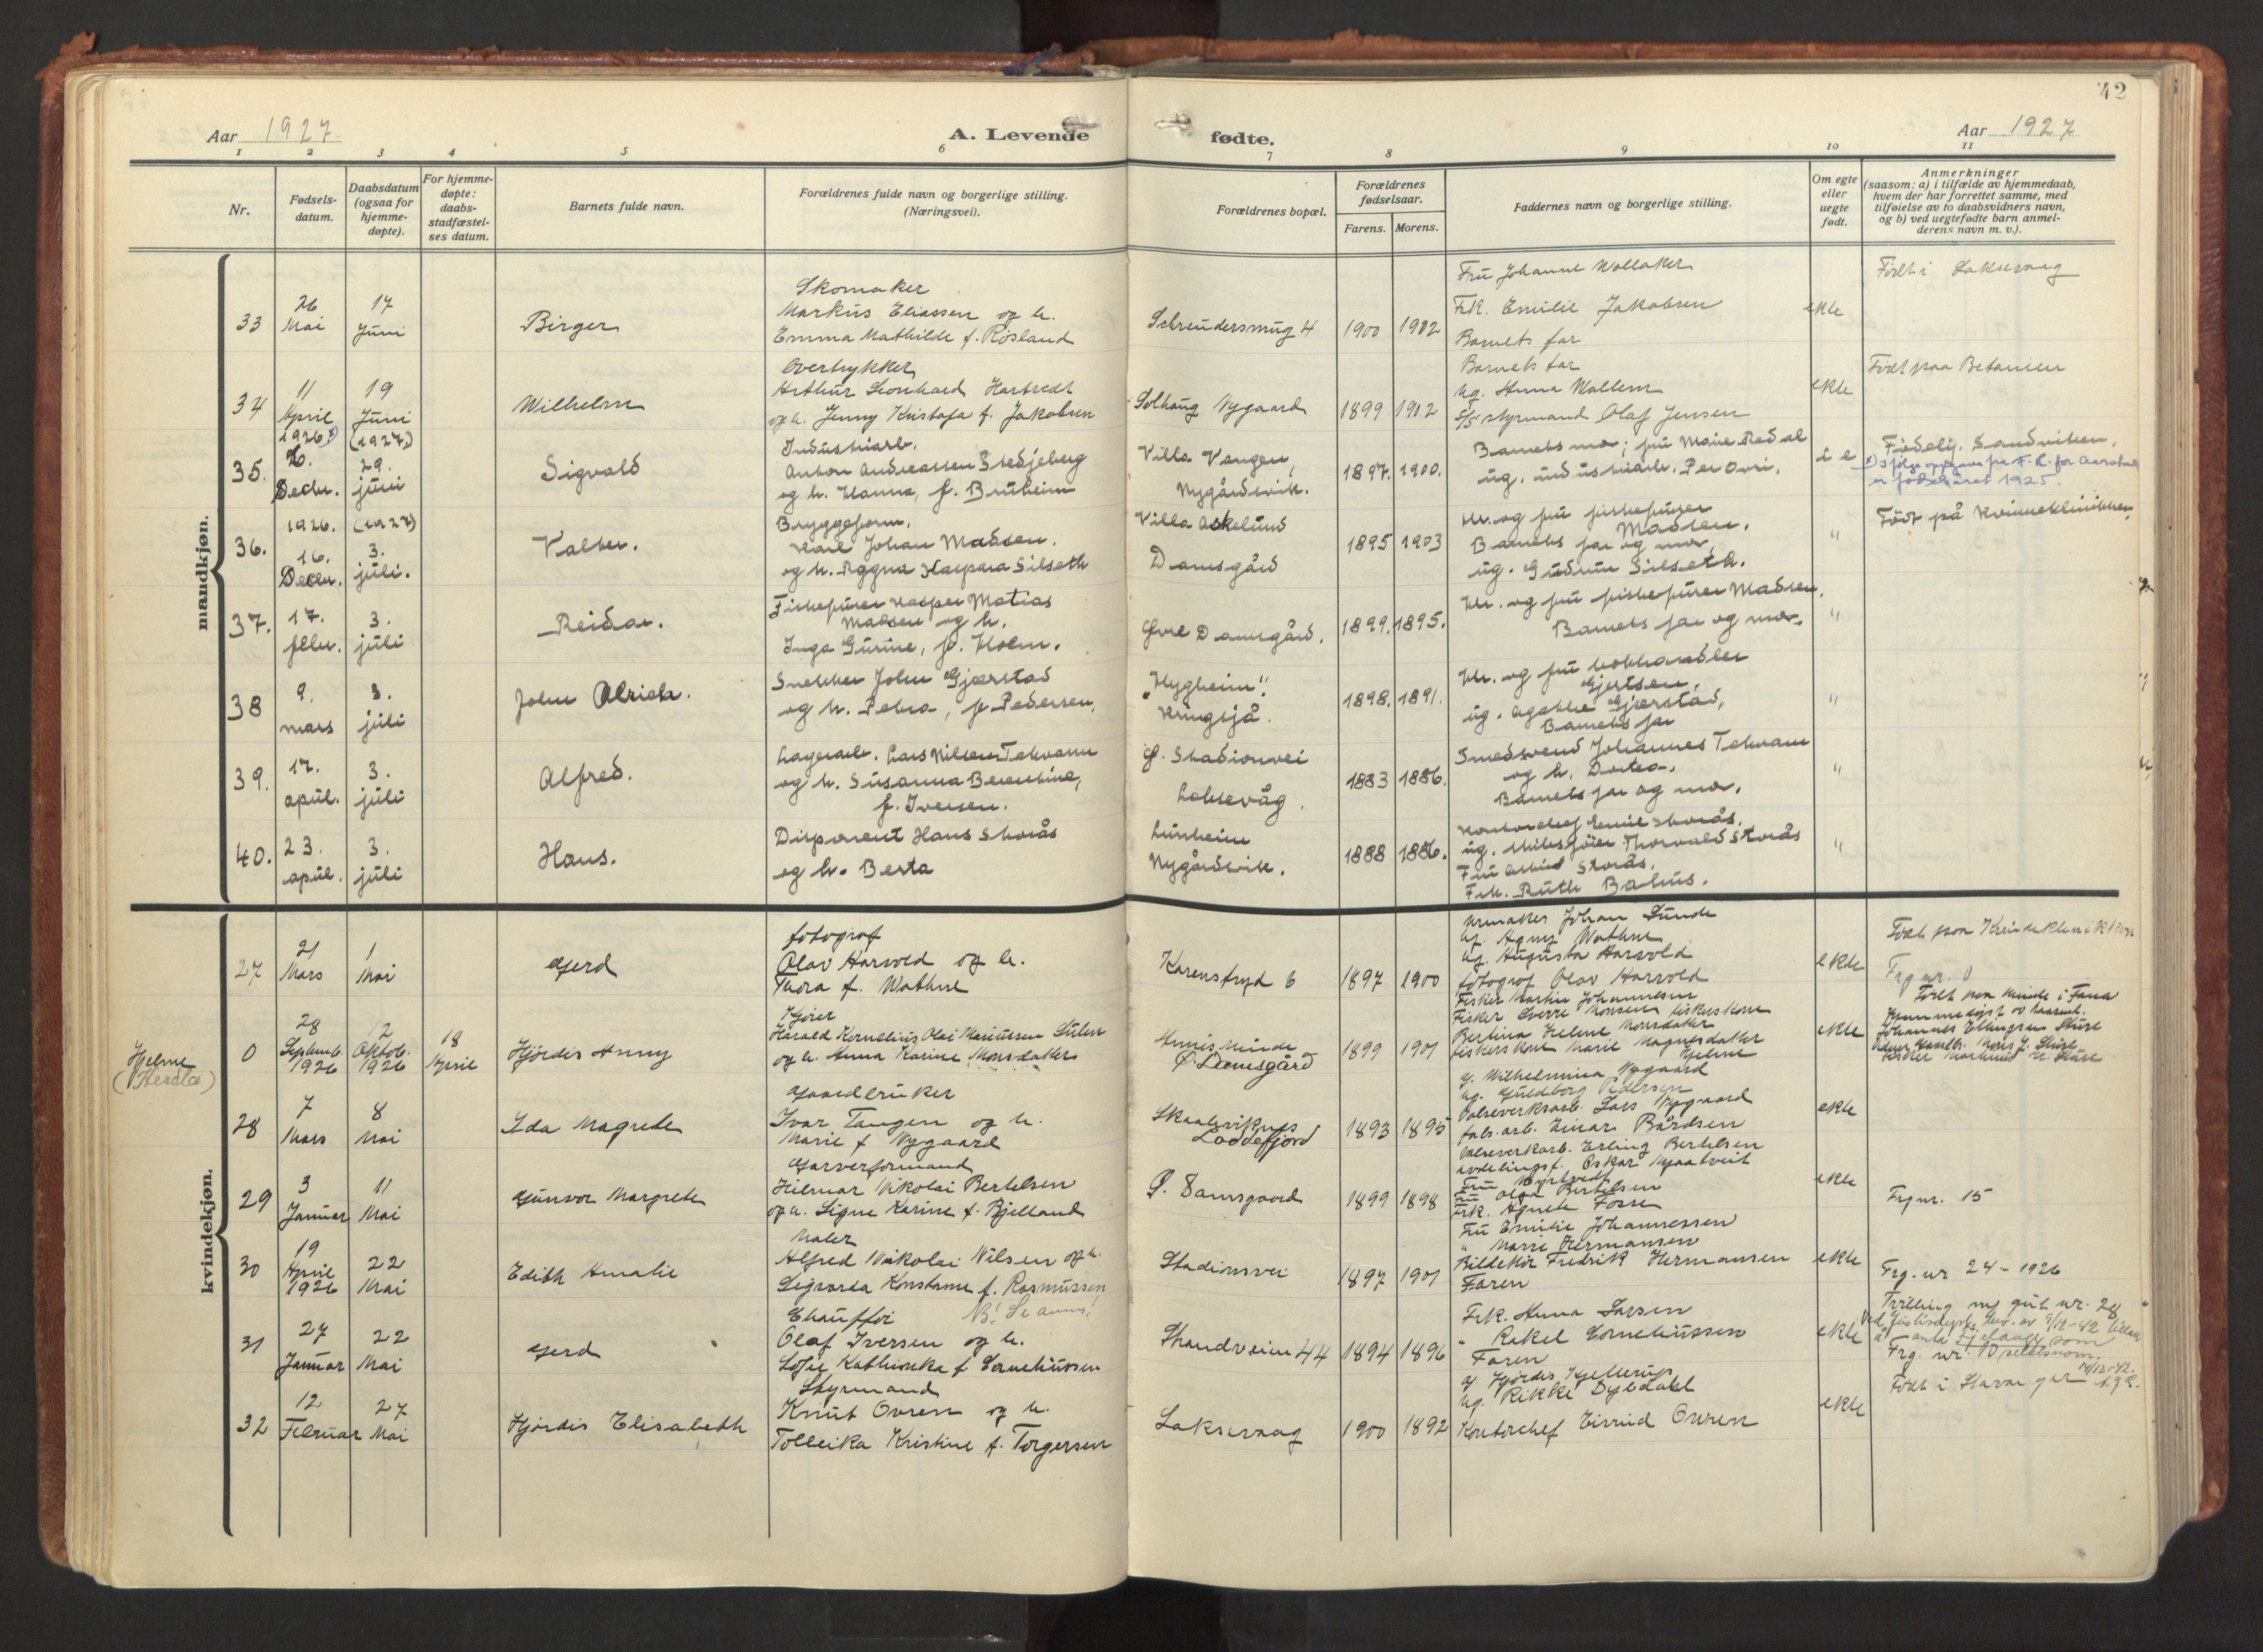 42
Aar 1927
A. Levende
fødte.
Aar 1927
1 2 3 4 5 6 7 8 9 10 11
Nr.
Fødsels-
datum.
Daabsdatum
(ogsaa for
hjemme-
døpte).
For hjemme-
døpte:
daabs-
stadfæstel-
ses datum.
Barnets fulde navn.
Forældrenes fulde navn og borgerlige stilling.
(Næringsvei).
Forældrenes bopæl.
Forældrenes
fødselsaar.
Farens. Morens.
Faddernes navn og borgerlige stilling.
Om egte
eller
uegte
født.
Anmerkninger
(saasom: a) i tilfælde av hjemmedaab,
hvem der har forrettet samme, med
tilføielse av to daabsvidners navn,
og b) ved uegtefødte barn anmel-
derens navn m. v.).
mandkjøn.
33
26
Mai
17
Juni
Birger
Skomaker
Markus Eliassen og h.
Emma Mathilde f. Røsland
Schreudersmug 4
1900 1902
Fru Johanne Wollaker
Frk. Emilie Jakobsen
Barnets far
ekte
Født i Laksevaag
34
11
April
19
Juni
Wilhelm
Overtrykker
Arthur Leonhard Hartvedt
og h. Jenny Kristofa f. Jakobsen
Solhaug Nygaard
1899 1902
Barnets far
Ug. Anna Mallem
Styrmand Olaf Jensen
ekte
Født paa Betanien
35.
1926 x)
Decbr.
(1927)
29.
juni
Sigvald
Industriarb.
Anton Andreassen Stedjeberg
og h. Hanna, f. Bruheim
Villa Vangen,
Nygårdsvik.
1897. 1900.
Barnets mor; fru Marie Redal
ug. industriarb. Per Ovri.
Fødselj. Sandviken.
er fødselsåret 1925.
36.
1926.
16.
Decbr.
(1927)
3.
juli.
Valter.
Bryggeform.
Karl Johan Madsen.
og h. Aggna Kaspara Silseth
Villa Askelund
Damsgård
1895 1903
Hr. og fru fiskefører
Madsen.
Barnets far og mor,
ug. Gudrun Silseth.
"
Født på Kvinneklinikken,
37.
17.
febr.
3.
juli
Reidar.
Fiskefører Kasper Matias
Madsen og h.
Inga Gurine, f. Holm.
Øvre Damsgård.
1899. 1895.
Hr. og fru fiskefører Madsen.
Barnets far og mor.
"
38
9.
mars
3.
juli
John Alrich.
Snekker John Gjærstad
og h. Petra, f. Pedersen,
"Hygheim".
Kringsjå.
1898. 1891.
Hr. og fru bokhandler
Gjertsen,
ug. Agathe Gjærstad,
Barnets far
"
39.
17.
april.
3.
juli
Alfred.
Lagerarb. Lars Nilsen Tokvam
og h. Susanna Berentine,
f. Iversen.
Ø. Stadionvei
Laksevåg.
1883 1886.
Smedsvend Johannes Tokvam
og h. Dortea.
Barnets far og mor.
"
40.
23.
april.
3.
juli
Hans.
Disponent Hans Storås
og h. Berta
Lunheim
Nygårdsvik.
1888 1886.
Kontorchef Emil Storås,
Thorvald Storås
Storås.
Frk. Ruth Bahus.
"
kvindekjøn.
27
21
Mars
1
Mai
Gerd
fotograf
Olav Harvold og h.
Thora f. Wathne
Korenstryd 6
1897 1900
Urmaker Johan Sunde
Ug. Agny Wathne
Ug. Augusta Harvold
fotograf Olav Harvold
ekte
Født paa Kvinneklinikken
Frg nr. 0
Hjelme
(Herdla)
0
28
Septemb.
1926
12
Oktob.
1926
18
April
Hjördis Anny
Harald Kornelius Olai Mariussen Sulen
og h. Anna Karine Monsdatter
Minde
Ø. Damsgård
1899 1901
Fisker Martin Johannesen
Fisker Sverre Monsen fiskerskone
Bertina Helene Monsdatter
fiskerskone Marie Magnesdatter
Hjelme
ekte
Født paa Minde i Fana
Hjemmedøpt
Johannes Ellingsen Sture
28
7
Mars
8
Mai
Ida Magrete
Gaardbruker
Ivar Tangen og h.
Marie f Nygaard
Skaalevikens
Loddefjord
1893 1895
g. Wilhelmina Nygaard
ug. Guldborg Pedersen
Valseverksarb. Lars Nygaard
fabr. arb. Einar Bårdsen
ekte
29
3
Januar
11
Mai
Gunvor Margrete
Garverformand
Hilmar Nikolai Bertelsen
og h. Signe Karine f. Bjelland
Ø. Damsgaard
1899 1898
Valseverkarb. Erling Bertelsen
avdelingsf. Oskar
Fru Olga Bertelsen
Frk. Agnete Fosse
ekte
Frg nr. 15
30
19
April
1926
22
Mai
Edith Amalie
Maler
Alfred Nikolai Nilsen og h.
Sigvarda Konstanse f. Rasmussen
Stadionsvei
1897 1901
Fru Emilie Johannessen
" Marie Hermansen
Fredrik Hermansen
Faren
ekte
Frg. nr 24 - 1926
31
27
Januar
22
Mai
Gerd
Chauffør NB! Se anm!
Olaf Iversen og h.
Sofie Kathinka f Corneliussen
Strandveien 44
1894 1896
Frk. Anna Larsen
" Rakel Corneliussen
Faren
ekte
Tvilling m/ gut nr. 28
Frg. nr. 10
32
12
Februar
27
Mai
Hjördis Elisabeth
Styrmand
Knut Ovren og h.
Tolleika Kristine f. Torgersen
Laksevaag
1900 1892
g. Hjördis Kjellerup
ug. Rikke Dybdahl
Kontorchef Eivind Ovren
ekte
Født i Stavanger